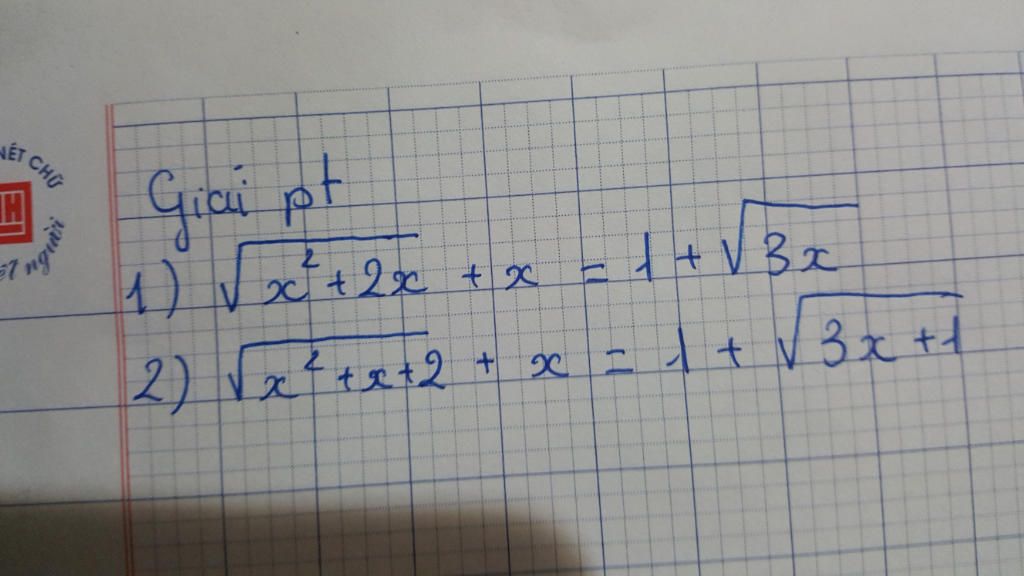 NÉT CHỮ
H
ẾT người
Giải pt
1) √(x² + 2x) + x = 1 + √(3x)
2) √(x² + x + 2) + x = 1 + √(3x + 1)